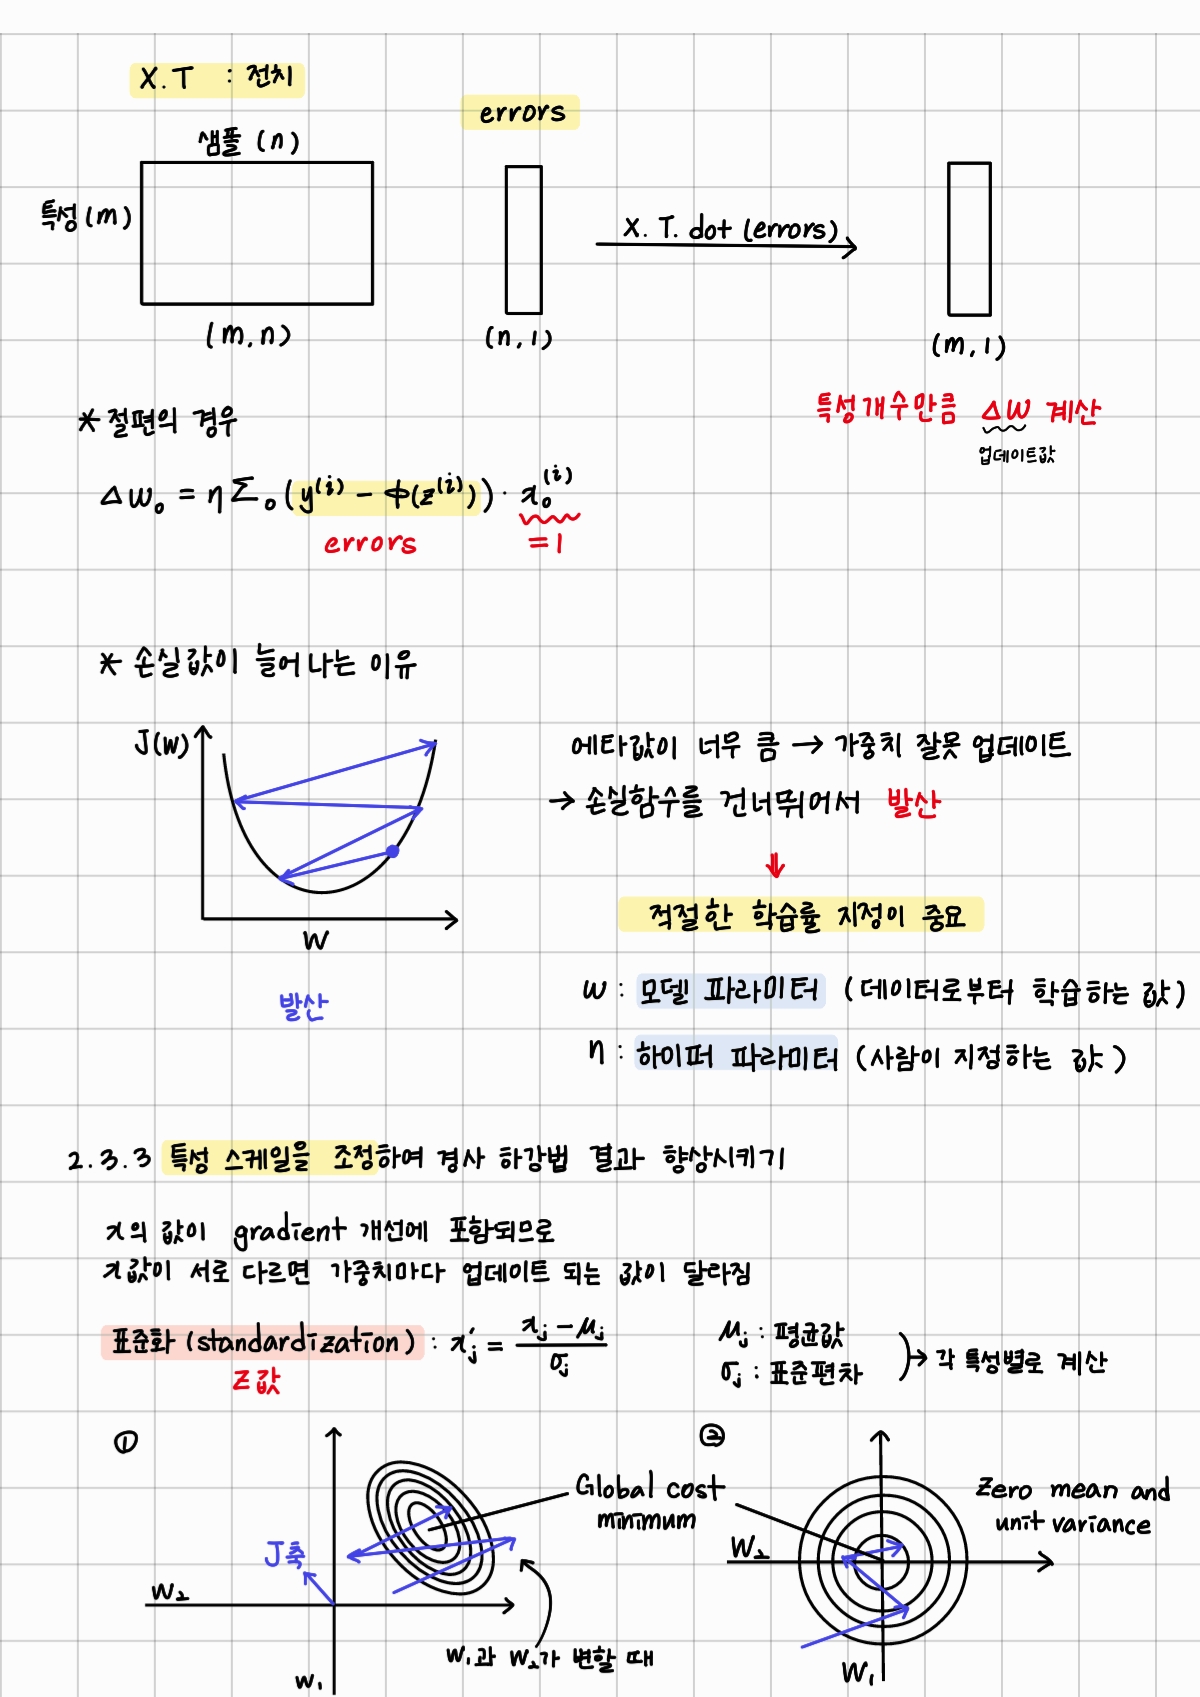 X.T : 전치
errors
샘플 (n)
특성(m)
X. T. dot (errors)
(m,n)
(n,1)
(m,1)
특성개수만큼 Δw 계산
업데이트값
* 절편의 경우
Δw₀ = η Σ₀ (y⁽ⁱ⁾ - Φ(z⁽ⁱ⁾)) · x₀⁽ⁱ⁾
errors
=1
* 손실값이 늘어나는 이유
J(w)
W
발산
에타값이 너무 큼 → 가중치 잘못 업데이트
→ 손실함수를 건너뛰어서 발산
⇓
적절한 학습률 지정이 중요
w : 모델 파라미터 (데이터로부터 학습하는 값)
η : 하이퍼 파라미터 (사람이 지정하는 값)
2.3.3 특성 스케일을 조정하여 경사 하강법 결과 향상시키기
x의 값이 gradient 개선에 포함되므로
x값이 서로 다르면 가중치마다 업데이트 되는 값이 달라짐
표준화 (standardization) : x'ⱼ = (xⱼ - μⱼ) / σⱼ
z값
μⱼ : 평균값
σⱼ : 표준편차
→ 각 특성별로 계산
①
J축
W₂
w₁
Global cost
minimum
w₁과 w₂가 변할 때
②
Zero mean and
unit variance
W₂
W₁